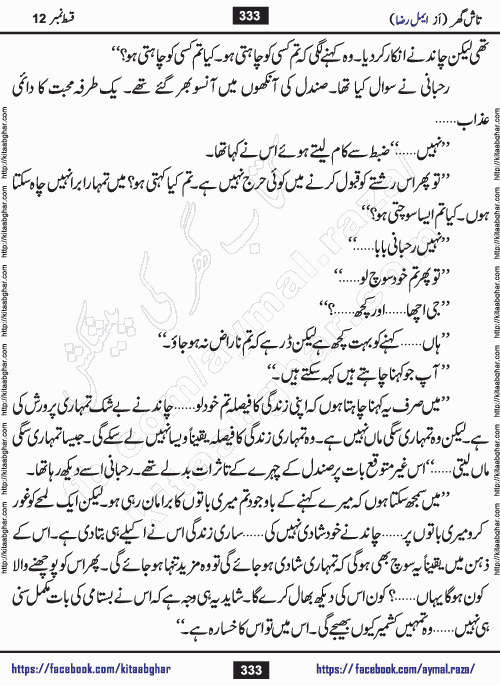 تاش گھر (از ایمل رضا)
333
قسط نمبر 12
تھی لیکن چاند نے انکار کر دیا۔ وہ کہنے لگی کہ تم کسی کو چاہتی ہو۔ کیا تم کسی کو چاہتی ہو؟‘‘
رحبانی نے سوال کیا تھا۔ صندل کی آنکھوں میں آنسو بھر گئے تھے۔ یک طرفہ محبت کا دائمی
عذاب……
’’نہیں……‘‘ ضبط سے کام لیتے ہوئے اس نے کہا تھا۔
’’تو پھر اس رشتے کو قبول کرنے میں کوئی حرج نہیں ہے۔ تم کیا کہتی ہو؟ میں تمہارا برا نہیں چاہ سکتا
ہوں۔ کیا تم ایسا سوچتی ہو؟‘‘
’’نہیں رحبانی بابا……‘‘
’’تو پھر تم خود سوچ لو……‘‘
’’جی اچھا…… اور کچھ……؟‘‘
’’ہاں…… کہنے کو بہت کچھ ہے لیکن ڈر ہے کہ تم ناراض نہ ہو جاؤ۔‘‘
’’آپ جو کہنا چاہتے ہیں کہہ سکتے ہیں۔‘‘
’’میں صرف یہ کہنا چاہتا ہوں کہ اپنی زندگی کا فیصلہ تم خود لو…… چاند نے بے شک تمہاری پرورش کی
ہے۔ لیکن وہ تمہاری سگی ماں نہیں ہے۔ وہ تمہاری زندگی کا فیصلہ یقیناً ویسا نہیں لے سکے گی۔ جیسا تمہاری سگی
ماں لیتی……‘‘ اس غیر متوقع بات پر صندل کے چہرے کے تاثرات بدلے تھے۔ رحبانی اسے دیکھ رہا تھا۔
’’میں سمجھ سکتا ہوں کہ میرے کہنے کے باوجود تم میری باتوں کا برا مان رہی ہو۔ لیکن ایک لمحے کو غور
کرو میری باتوں پر…… چاند نے خود شادی نہیں کی…… ساری زندگی اس نے اکیلے ہی بتا دی ہے۔ اس کے
ذہن میں یقیناً یہ سوچ بھی ہوگی کہ تمہاری شادی ہو جائے گی تو وہ مزید تنہا ہو جائے گی۔ پھر اس کو پوچھنے والا
کون ہوگا یہاں……؟ کون اس کی دیکھ بھال کرے گا۔ شاید یہ ہی وجہ ہے کہ اس نے بستامی کی بات مکمل سنی
ہی نہیں…… وہ تمہیں کشمیر کیوں بھیجے گی۔ اس میں تو اس کا خسارہ ہے۔‘‘
https://facebook.com/kitaabghar
333
https://facebook.com/aymal.raza/
http://kitaabghar.com